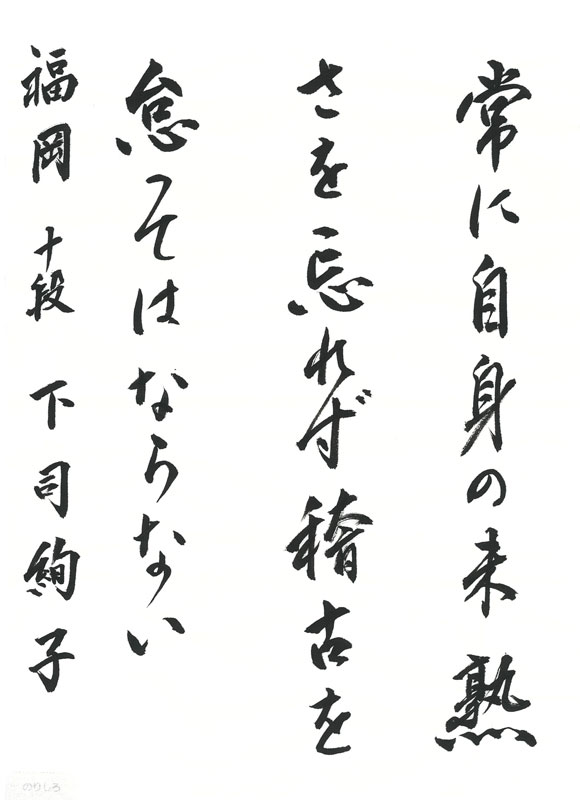 常に自身の未熟
さを忘れず稽古を
怠ってはならない
福岡 十段 下司絢子
のりしろ